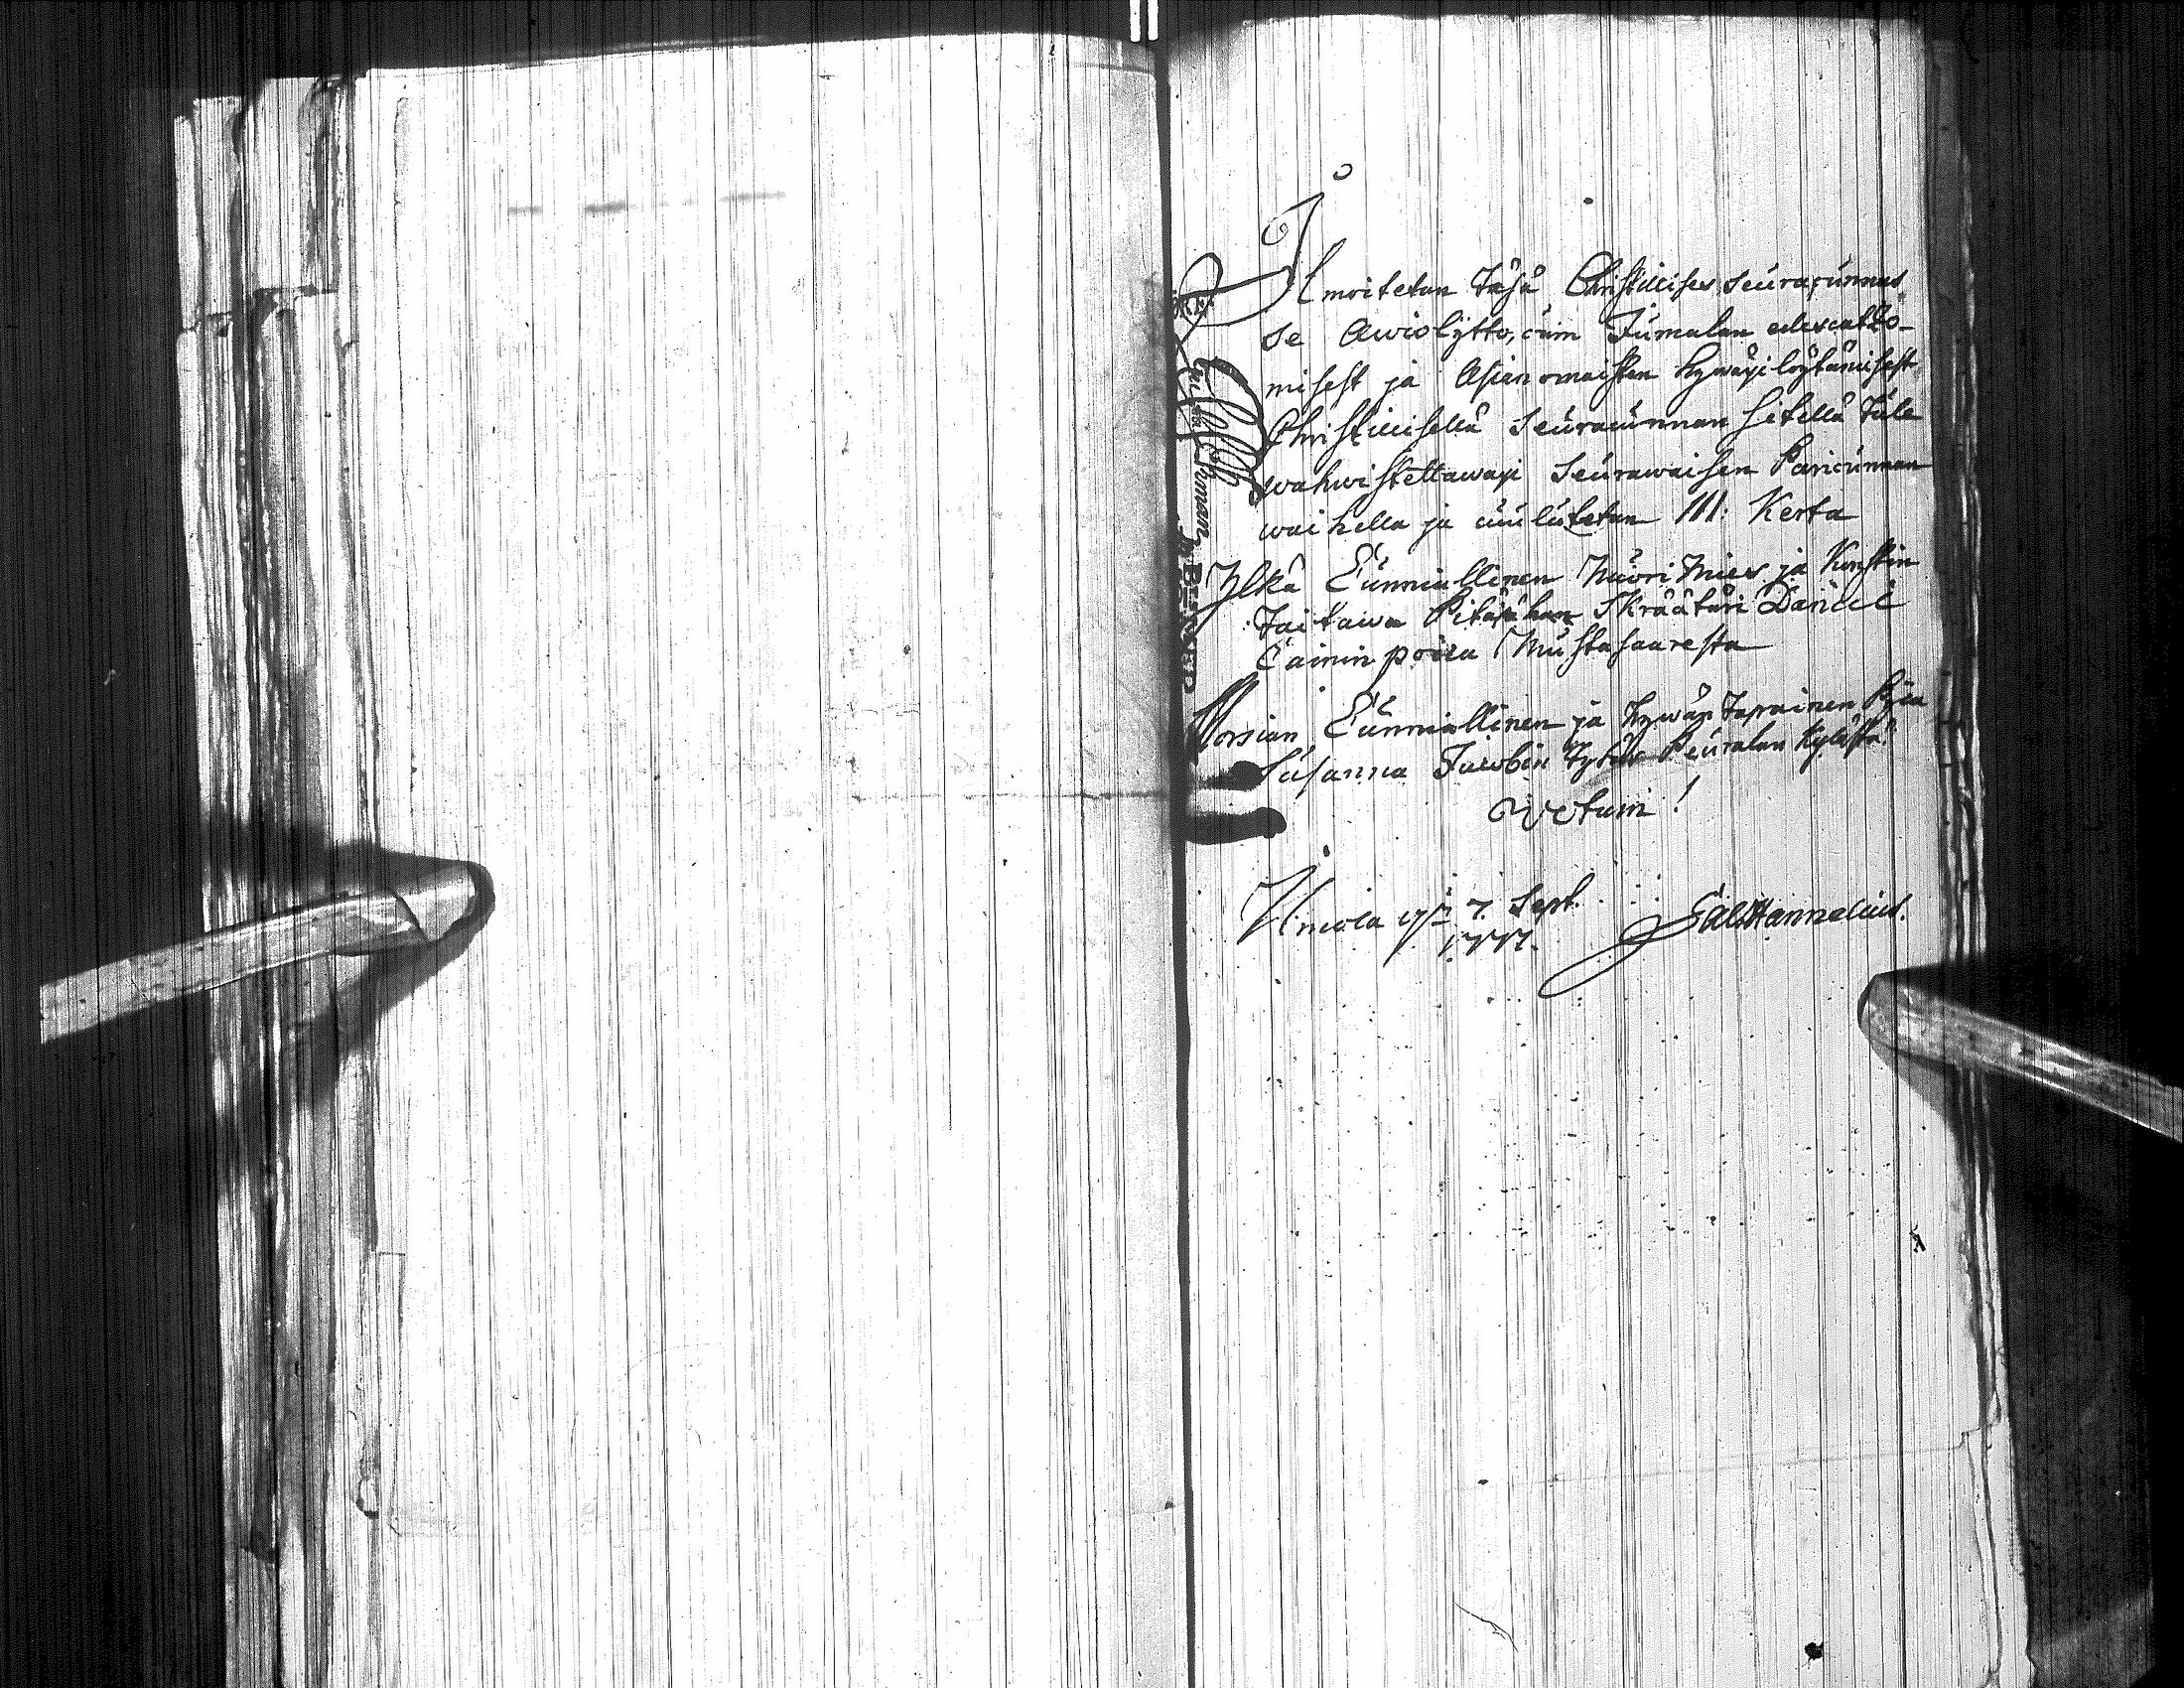 Ilmoitetan täsä Christillises seuracunnas
se Awioliitto, cuin Jumalan edescatzo-
misest ja Asianomaisten hywäxi löytämisest
Christillisellä Seuracunnan sitellä tule
wahwistettawaxi seurawaisen Paricunnan
waihella ja cuulutetan III: Kerta
Ylkä Cunniallinen Nuori Mies ja Konstin
Taitawa Pitäjähän Skräätäri Daniel
Cainin poica Mustasaaresta
Morsian Cunniallinen ja hywän Tapainen Pijca
Susanna Jacobin Tytär Peuralan kylästä
Ilmola 7 Sept.
1777.